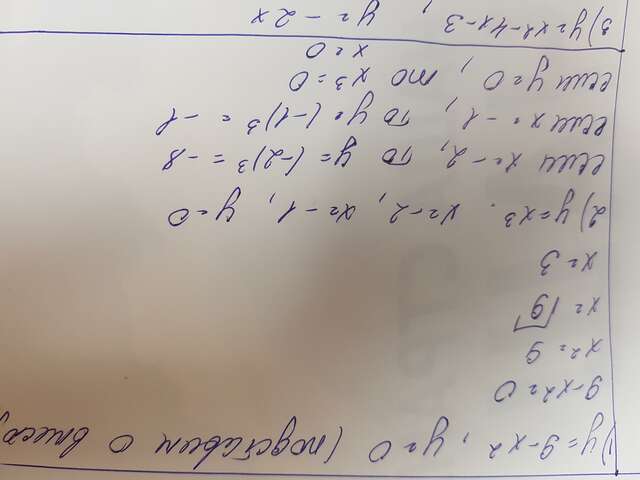 1) y = 9 - x², y = 0 (подставим 0 вместо
9 - x² = 0
x² = 9
x = √9
x = 3
2) y = x³. x = -2, x = -1, y = 0
если x = -2, то y = (-2)³ = -8
если x = -1, то y = (-1)³ = -1
если y = 0, то x³ = 0
x = 0
3) y = x² - 4x - 3, y = -2x